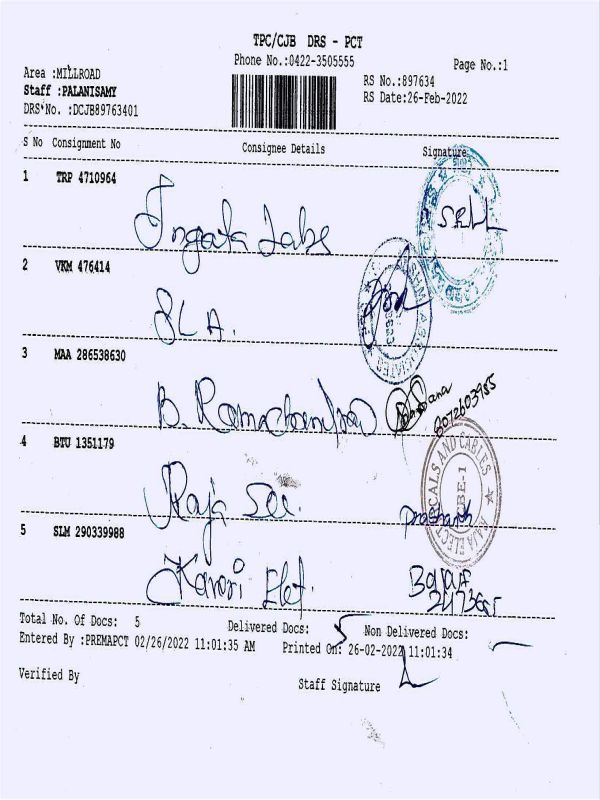 TPC/CJB DRS - PCT
Phone No.:0422-3505555
Page No.:1
Area :MILLROAD
RS No.:897634
Staff :PALANISAMY
RS Date:26-Feb-2022
DRS No. :DCJB89763401
S No Consignment No Consignee Details Signature
1 TRP 4710964
Labs
2 VKM 476414
S L A.
3 MAA 286538630
B. Ramachandran
8072603985
4 BTU 1351179
CALS AND CABLES
CBE-1
RAJA ELECT
Raja
Prashanth
5 SLM 290339988
Kaveri Elet.
Total No. Of Docs: 5 Delivered Docs: 5 Non Delivered Docs: -
Entered By :PREMAPCT 02/26/2022 11:01:35 AM Printed On: 26-02-2022 11:01:34
Verified By Staff Signature